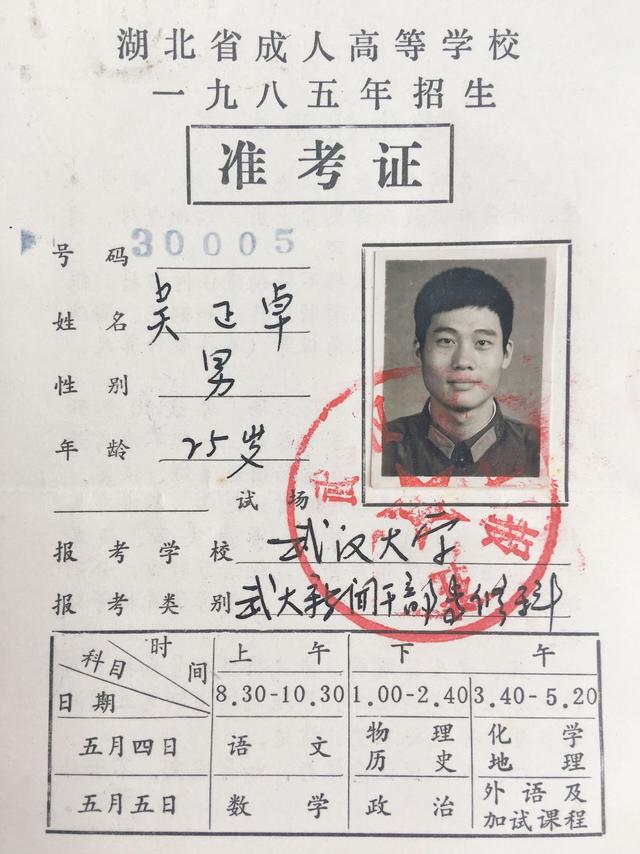 湖北省成人高等学校
一九八五年招生
准考证
号码 30005
姓名 吴正卓
性别 男
年龄 25岁
试场
报考学校 武汉大学
报考类别 武大新闻干部专修科
时间
科目
日期
上午 下午
8.30-10.30 1.00-2.40 3.40-5.20
五月四日 语文 物理 历史 化学 地理
五月五日 数学 政治 外语及加试课程